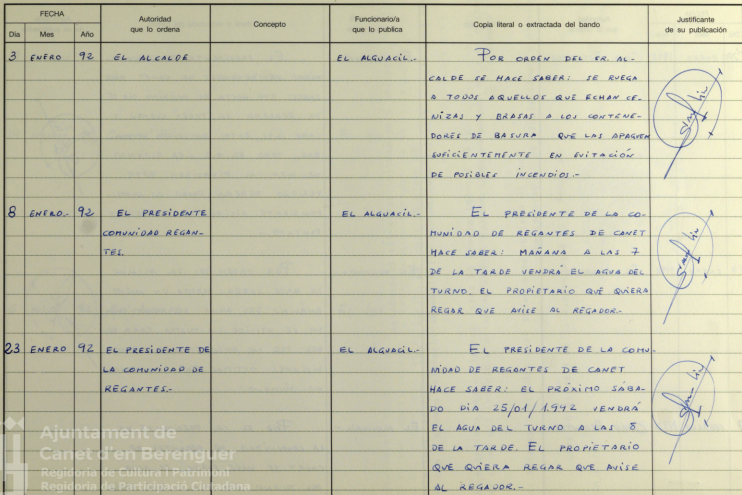 FECHA
Día Mes Año
Autoridad
que lo ordena
Concepto
Funcionario/a
que lo publica
Copia literal o extractada del bando
Justificante
de su publicación
3 ENERO 92 EL ALCALDE EL ALGUACIL.- POR ORDEN DEL SR. AL-
CALDE SE HACE SABER: SE RUEGA
A TODOS AQUELLOS QUE ECHAN CE-
NIZAS Y BRASAS A LOS CONTENE-
DORES DE BASURA QUE LAS APAGUEN
SUFICIENTEMENTE EN EVITACIÓN
DE POSIBLES INCENDIOS.-
8 ENERO.- 92 EL PRESIDENTE EL ALGUACIL.- EL PRESIDENTE DE LA CO-
COMUNIDAD REGAN- MUNIDAD DE REGANTES DE CANET
TES. HACE SABER: MAÑANA A LAS 7
DE LA TARDE VENDRÁ EL AGUA DEL
TURNO. EL PROPIETARIO QUE QUIERA
REGAR QUE AVISE AL REGADOR.-
23 ENERO 92 EL PRESIDENTE DE EL ALGUACIL.- EL PRESIDENTE DE LA COMU-
LA COMUNIDAD DE NIDAD DE REGANTES DE CANET
REGANTES.- HACE SABER: EL PRÓXIMO SÁBA-
DO DIA 25/01/1.992 VENDRÁ
EL AGUA DEL TURNO A LAS 8
DE LA TARDE. EL PROPIETARIO
QUE QUIERA REGAR QUE AVISE
AL REGADOR.-
Ajuntament de
Canet d'en Berenguer
Regidoria de Cultura i Patrimoni
Regidoria de Participació Ciutadana